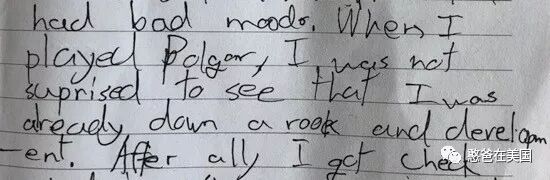 had bad moods. When I
played Polgar, I was not
suprised to see that I was
already down a rook and developm
-ent. After all, I got check
憨爸在美国